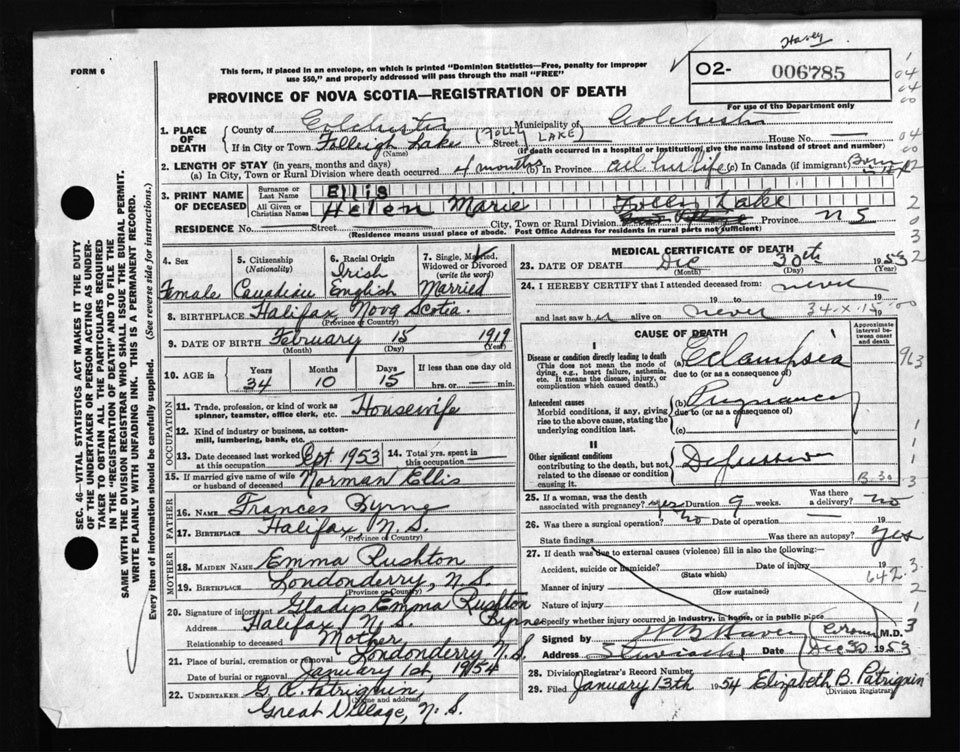 Havey
FORM 6
This form, if placed in an envelope, on which is printed "Dominion Statistics—Free, penalty for improper
use $50," and properly addressed will pass through the mail "FREE"
O2- 006785
For use of the Department only
PROVINCE OF NOVA SCOTIA—REGISTRATION OF DEATH
1. PLACE OF DEATH { County of Colchester Municipality of Colchester
If in City or Town Folleigh Lake (FOLLY LAKE) Street House No. —
(Name) (If death occurred in a hospital or institution, give the name instead of street and number)
2. LENGTH OF STAY (in years, months and days)
(a) In City, Town or Rural Division where death occurred 4 months (b) In Province all her life (c) In Canada (if immigrant) Born
3. PRINT NAME OF DECEASED { Surname or Last Name Ellis
All Given or Christian Names Helen Marie
RESIDENCE No. — Street — City, Town or Rural Division Folly Lake Province NS
(Residence means usual place of abode. Post Office Address for residents in rural parts not sufficient)
4. Sex Female
5. Citizenship (Nationality) Canadian
6. Racial Origin Irish English
7. Single, Married, Widowed or Divorced (write the word) Married
8. BIRTHPLACE Halifax Nova Scotia.
(Province or Country)
9. DATE OF BIRTH February 15 1919
(Month) (Day) (Year)
10. AGE in { Years 34 Months 10 Days 15 If less than one day old hrs. or — min.
OCCUPATION
11. Trade, profession, or kind of work as spinner, teamster, office clerk, etc. Housewife
12. Kind of industry or business, as cotton-mill, lumbering, bank, etc.
13. Date deceased last worked at this occupation Sept 1953 14. Total yrs. spent in this occupation —
15. If married give name of wife or husband of deceased Norman Ellis
FATHER
16. NAME Frances Byrne
17. BIRTHPLACE Halifax, N. S.
(Province or Country)
MOTHER
18. MAIDEN NAME Emma Rushton
19. BIRTHPLACE Londonderry, N.S.
(Province or Country)
20. Signature of informant Gladys Emma Rushton Byrne
Address Halifax, N. S.
Relationship to deceased Mother
21. Place of burial, cremation or removal Londonderry N.S.
Date of burial or removal January 1st, 1954
22. UNDERTAKER G. A. Patriquin,
(Name and address)
Great Village, N. S.
MEDICAL CERTIFICATE OF DEATH
23. DATE OF DEATH Dec 30th 1953
(Month) (Day) (Year)
24. I HEREBY CERTIFY that I attended deceased from never
19 to 19
and last saw her alive on never 19
CAUSE OF DEATH
Approximate interval between onset and death
I
Disease or condition directly leading to death (a) Eclampsia
(This does not mean the mode of dying, e.g., heart failure, asthenia, etc. It means the disease, injury, or complication which caused death.)
due to (or as a consequence of)
Antecedent causes (b) Pregnancy
Morbid conditions, if any, giving rise to the above cause, stating the underlying condition last.
due to (or as a consequence of)
(c)
II
Other significant conditions
contributing to the death, but not related to the disease or condition causing it.
B.30
25. If a woman, was the death associated with pregnancy? yes Duration 9 weeks. Was there a delivery? no
26. Was there a surgical operation? no Date of operation 19
State findings Was there an autopsy? yes
27. If death was due to external causes (violence) fill in also the following:—
Accident, suicide or homicide? Date of injury 19
(State which)
642.3
Manner of injury
(How sustained)
Nature of injury
Specify whether injury occurred in industry, in home, or in public place
Signed by H B Havey Coroner M.D.
Address Stewiacke Date Dec 30 1953
28. Division Registrar's Record Number
29. Filed January 13th 1954 Elizabeth B. Patriquin
(Division Registrar)
SEC. 46—VITAL STATISTICS ACT MAKES IT THE DUTY
OF THE UNDERTAKER OR PERSON ACTING AS UNDER-
TAKER TO OBTAIN ALL THE PARTICULARS REQUIRED
IN THE "REGISTRATION OF DEATH" AND TO FILE THE
SAME WITH THE DIVISION REGISTRAR WHO SHALL ISSUE THE BURIAL PERMIT.
WRITE PLAINLY WITH UNFADING INK. THIS IS A PERMANENT RECORD.
Every item of information should be carefully supplied. (See reverse side for instructions.)